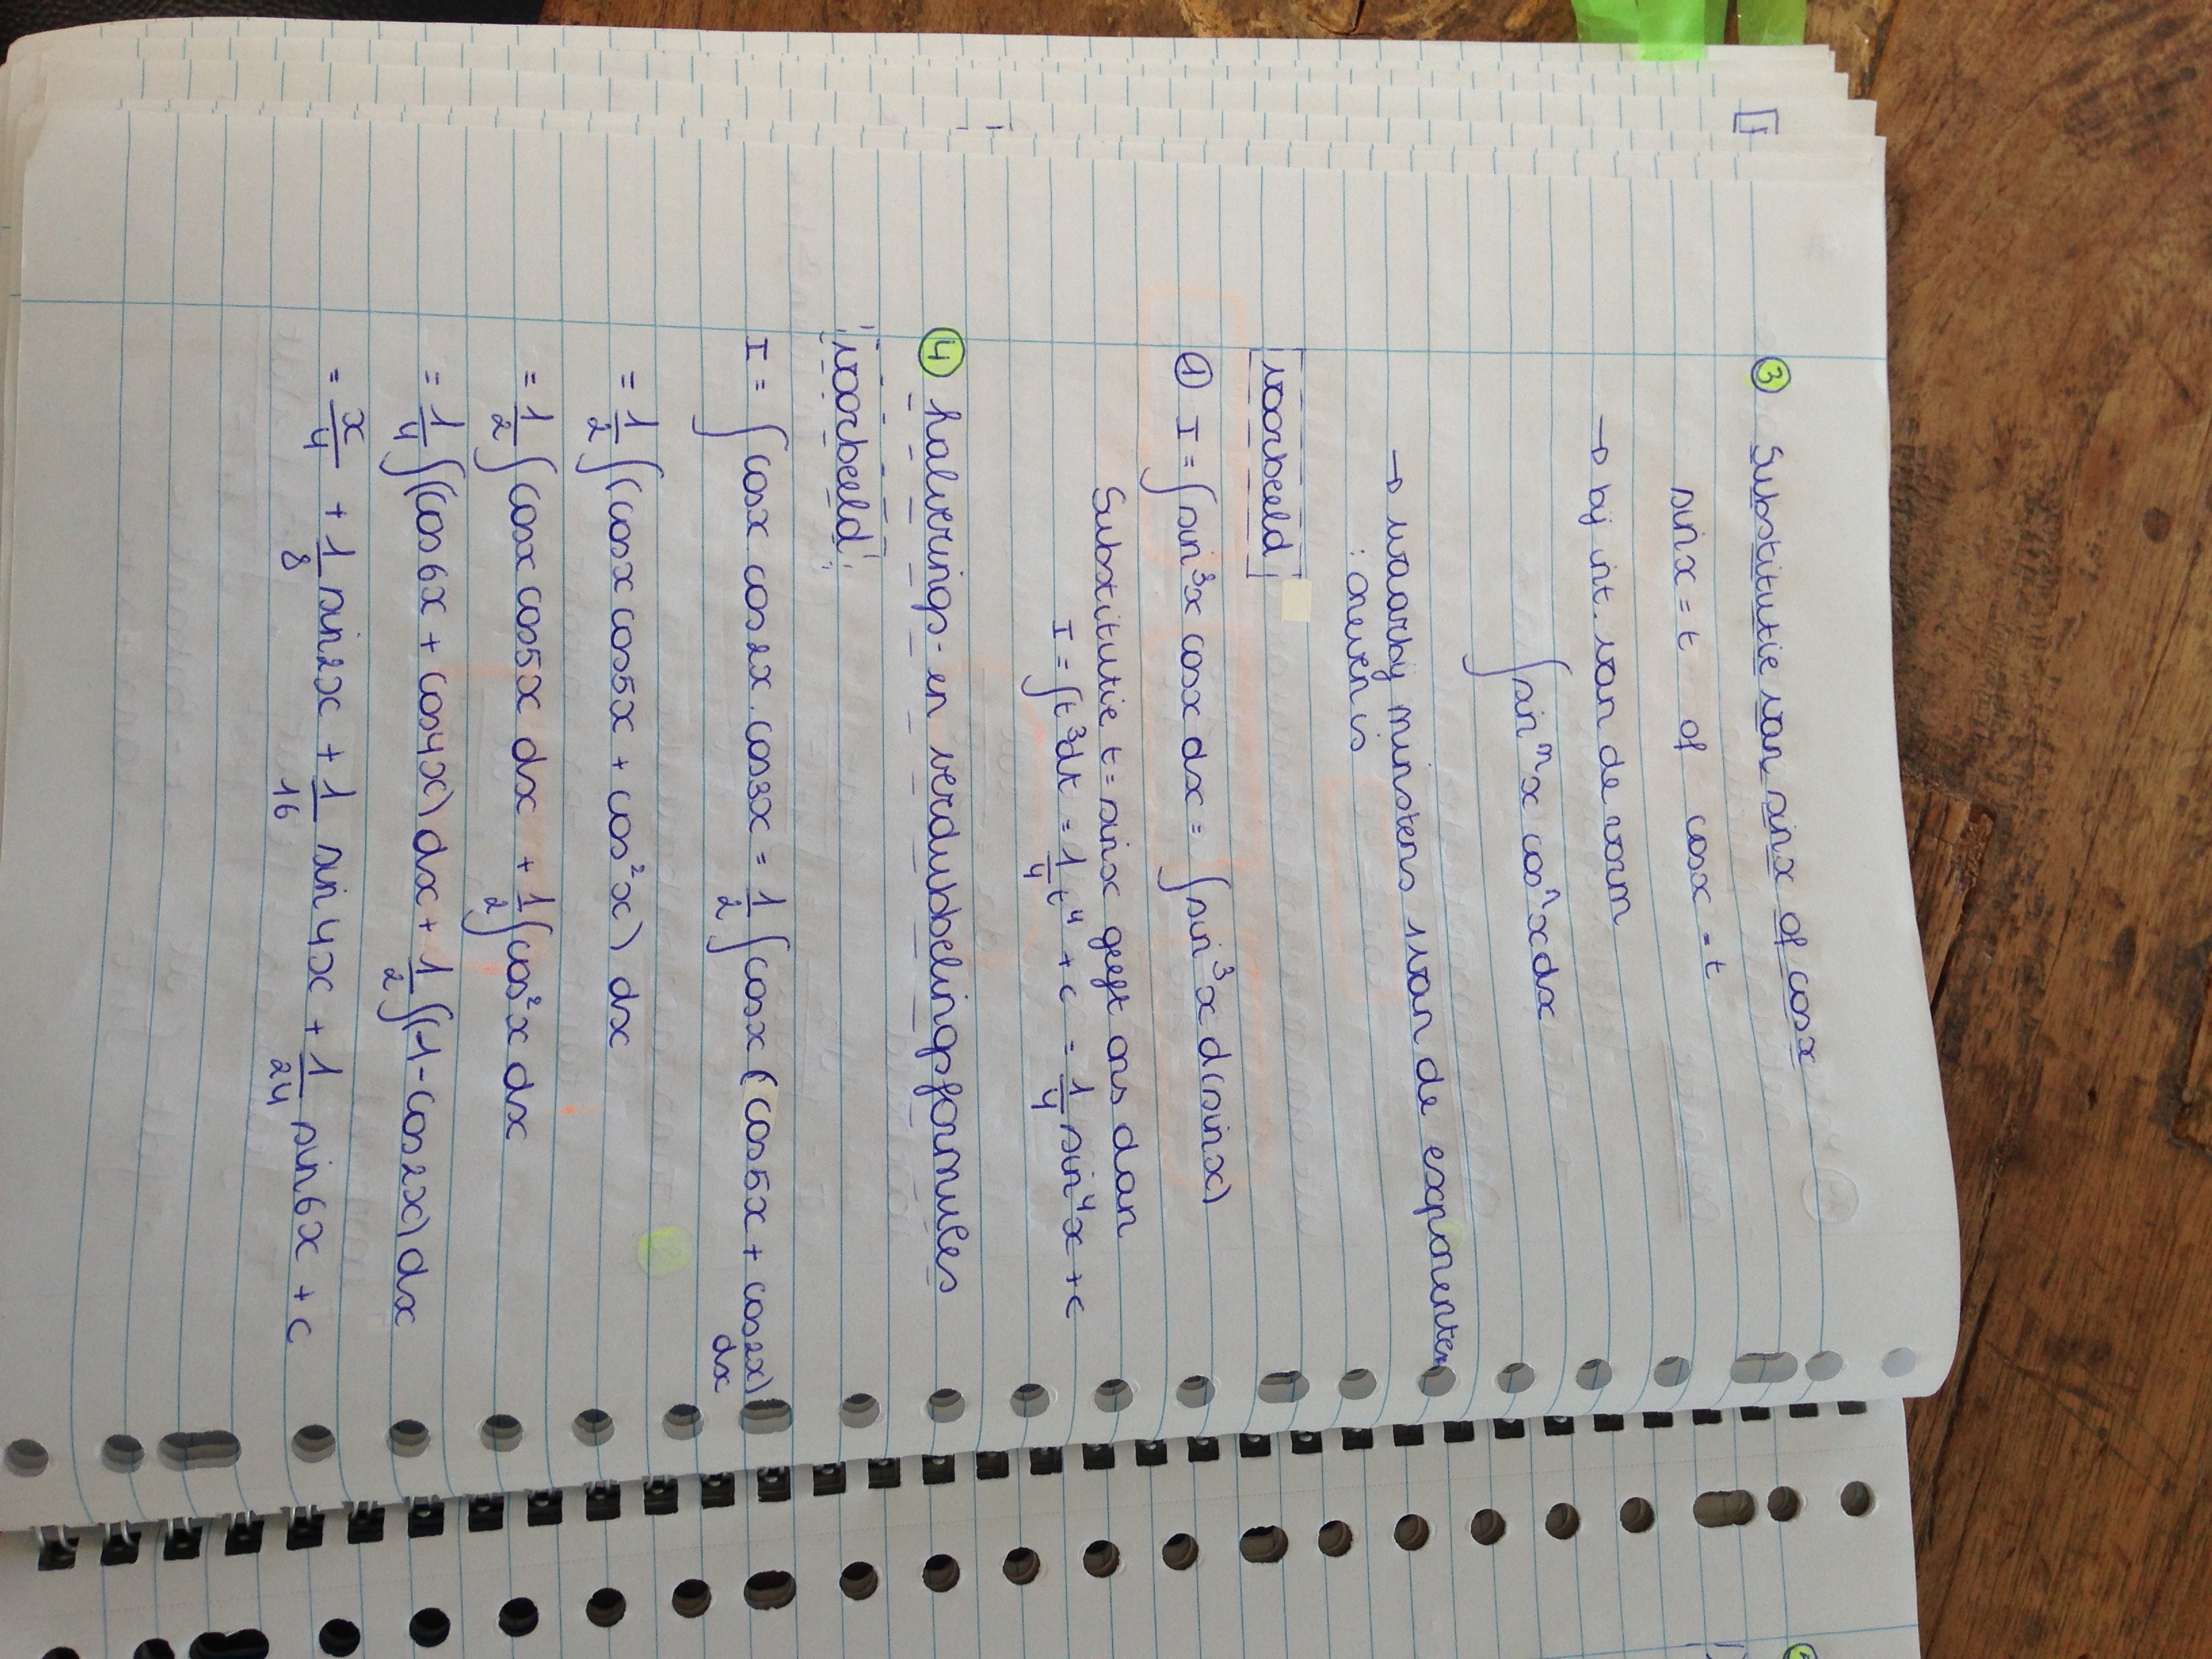 ③ Substitutie van sinx of cosx
sinx = t of cosx = t
→ bij int. van de vorm
∫sinᵐx cosⁿx dx
→ waarbij minstens 1 van de exponenten
: oneven is
voorbeeld
① I = ∫sin³x cosx dx = ∫sin³x d(sinx)
Substitutie t = sinx geeft ons dan
I = ∫t³dt = 1/4 t⁴ + c = 1/4 sin⁴x + c
④ halverings- en verdubbelingsformules
voorbeeld
I = ∫cosx cos2x . cos3x = 1/2 ∫cosx (cos5x + cos2x)
dx
= 1/2 ∫(cosx cos5x + cos²x) dx
= 1/2 ∫cosx cos5x dx + 1/2 ∫cos²x dx
= 1/4 ∫(cos6x + cos4x) dx + 1/2 ∫(1-cos2x) dx
= x/4 + 1/8 sin2x + 1/16 sin4x + 1/24 sin6x + c